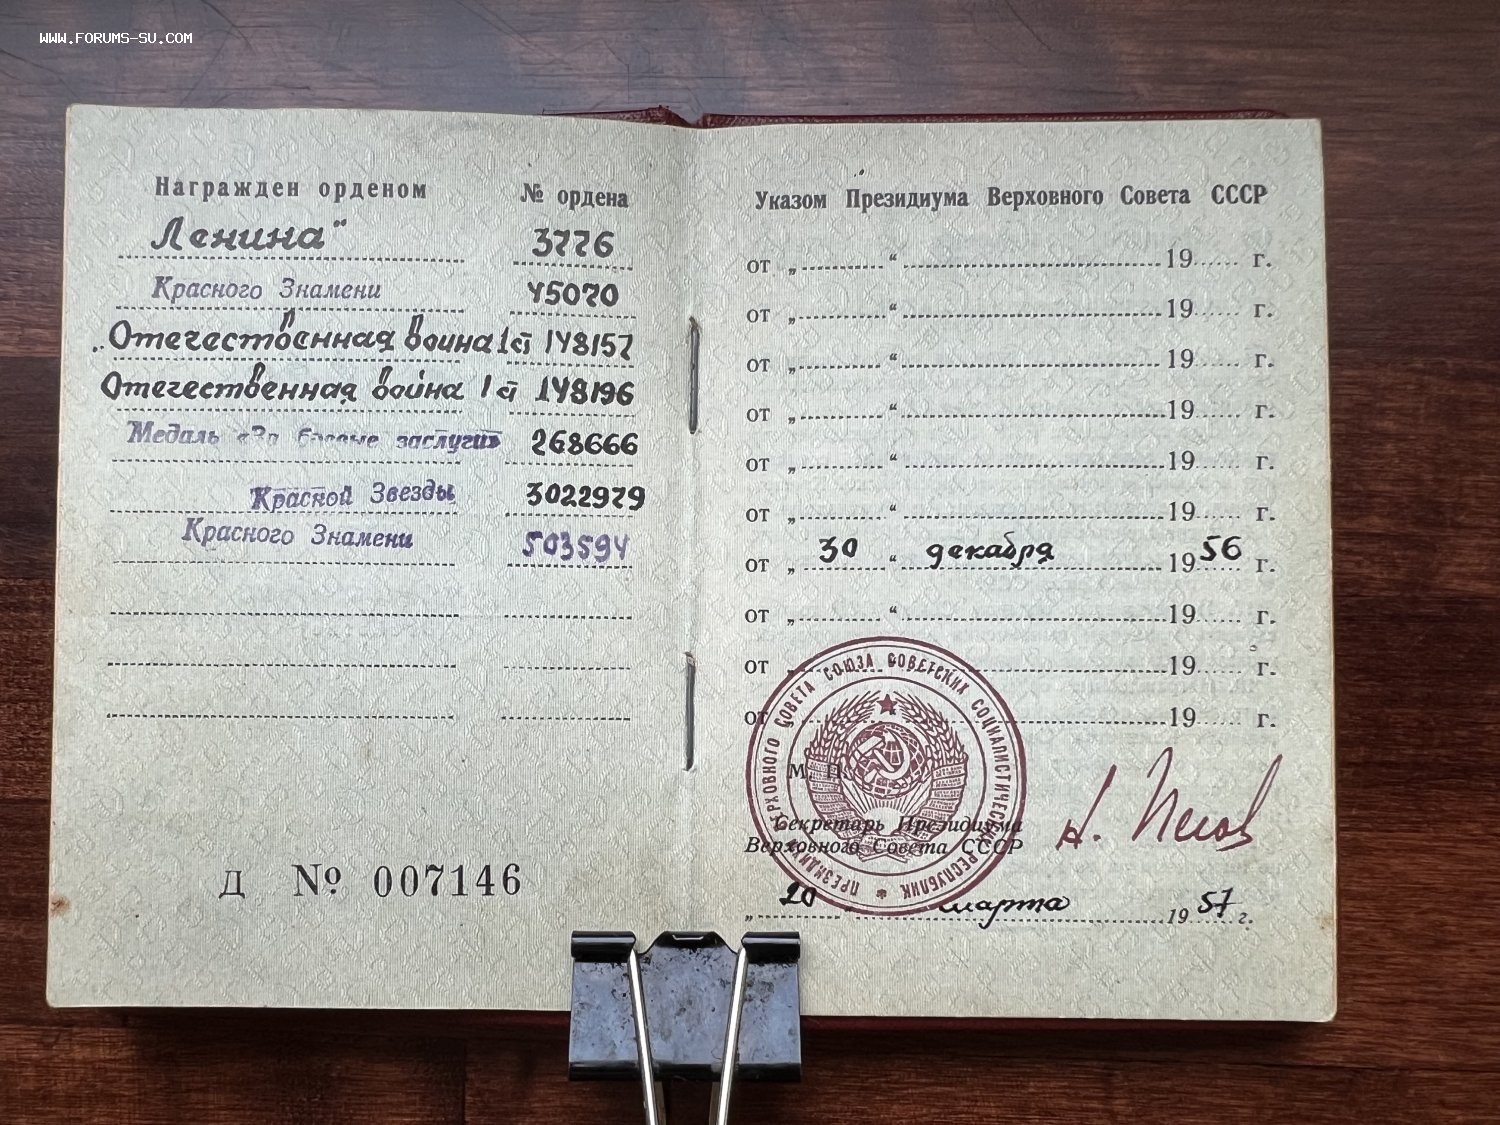 WWW.FORUMS-SU.COM
Награжден орденом № ордена
Ленина" 3776
Красного Знамени 45070
„Отечественная война 1 ст 148157
Отечественная война 1 ст 148196
Медаль «За боевые заслуги» 268666
Красной Звезды 3022979
Красного Знамени 503594
Д № 007146
Указом Президиума Верховного Совета СССР
от „ “ 19 г.
от „ “ 19 г.
от „ “ 19 г.
от „ “ 19 г.
от „ “ 19 г.
от „ “ 19 г.
от „ 30 “ декабря 19 56 г.
от „ “ 19 г.
от „ 19 г.
от „ 19 г.
М. П.
ПРЕЗИДИУМ ВЕРХОВНОГО СОВЕТА СОЮЗА СОВЕТСКИХ СОЦИАЛИСТИЧЕСКИХ РЕСПУБЛИК
Секретарь Президиума
Верховного Совета СССР
„ 20 “ марта 19 57 г.